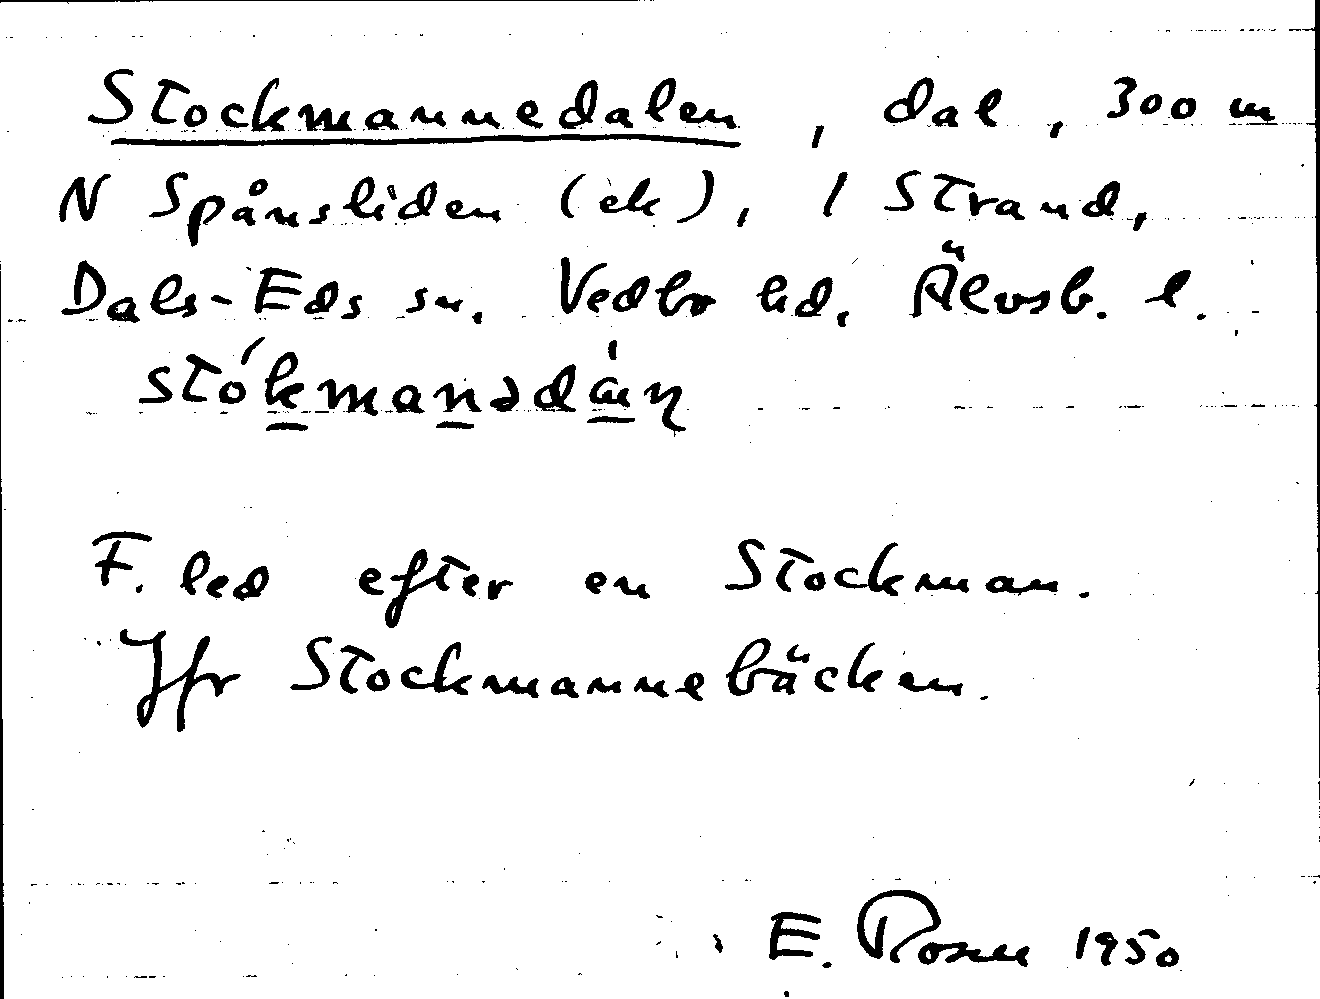 Stockmannedalen, dal, 300 m
N Spånsliden (ek), 1 Strand,
Dals-Eds sn. Vedbo hd. Älvsb. l.
F. led efter en Stockman.
Jfr Stockmannebäcken.
E. Rosen 1950